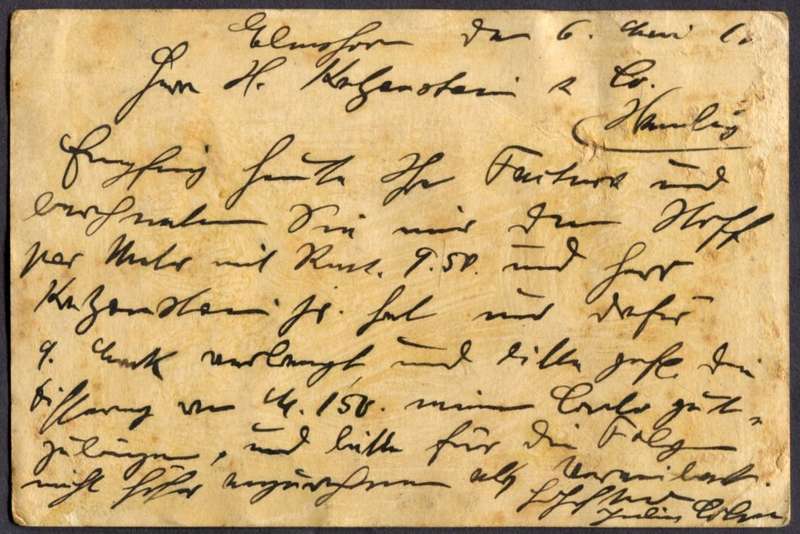 Elmshorn den 6. Mai
Herrn H. Katzenstein & Co.
Hamburg
Empfing heute Ihre Factura und
berechneten Sie mir den Stoff
per Meter mit 9.50. und Herr
Katzenstein jr. hat mir dafür
9. Mark verlangt und bitte gefl. die
Differenz von M. 1,50. meinem Conto gut-
zubringen, und bitte für die Folge
nicht höher anzurechnen als vereinbart.
Julius Cohn